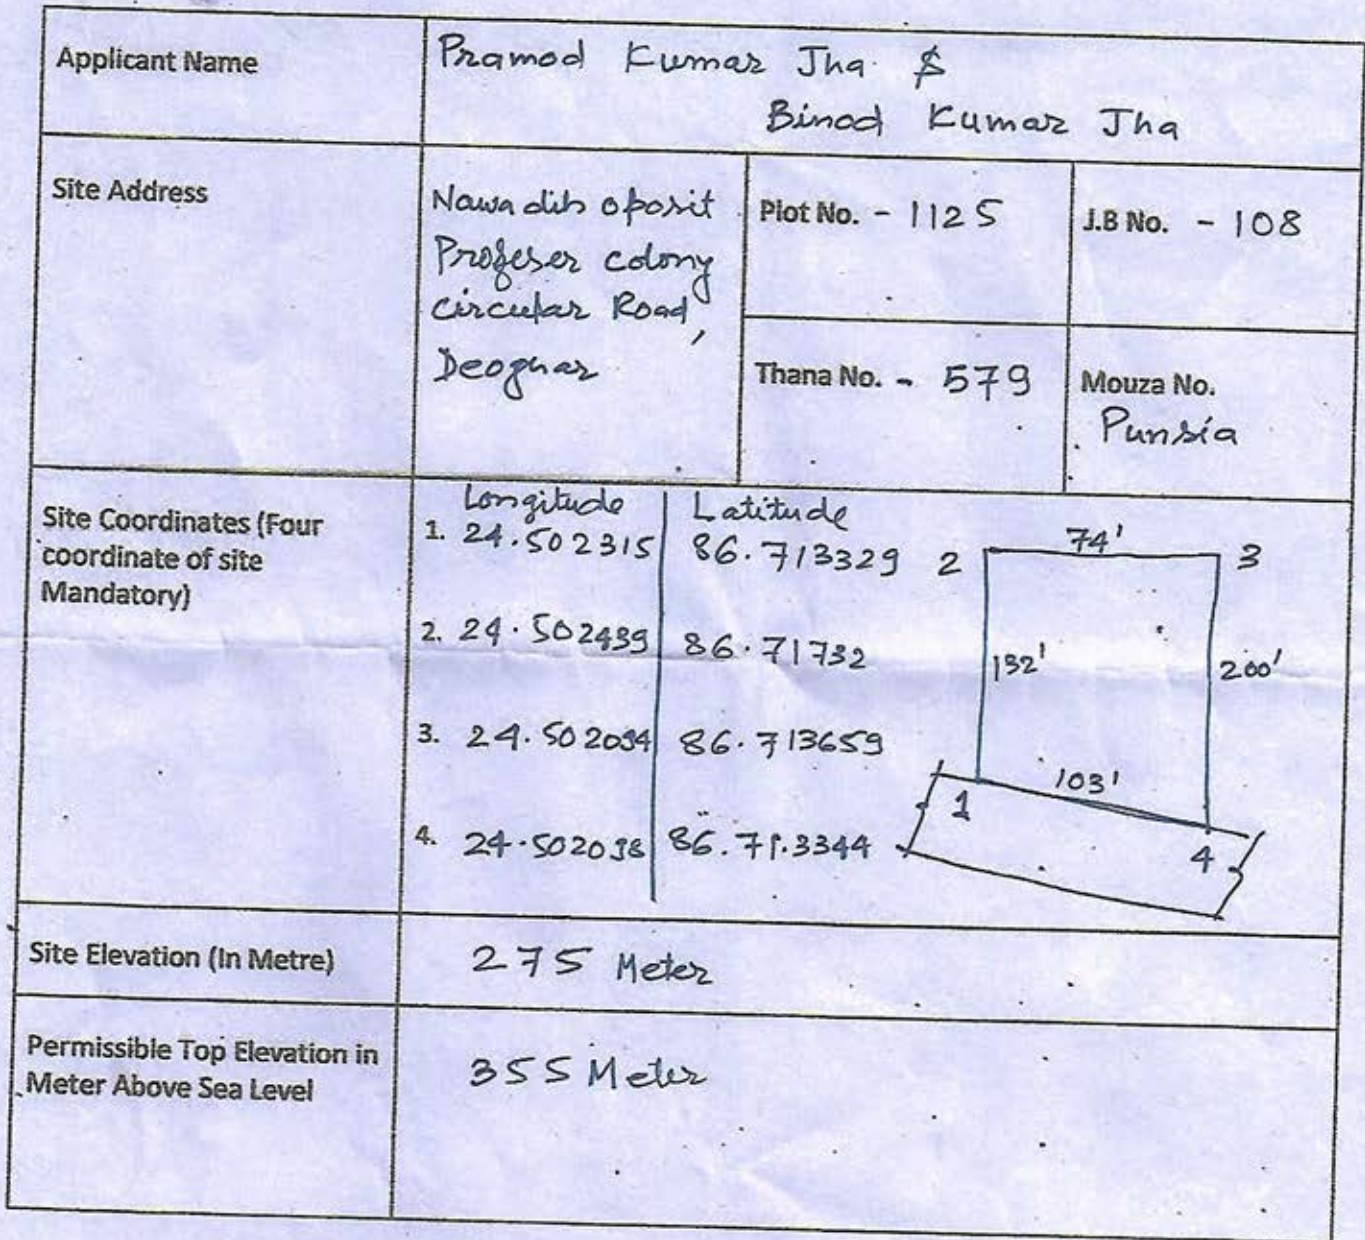 Applicant Name
Pramod Kumar Jha &
Binod Kumar Jha
Site Address
Nawadih oposit
Profeser colony
circular Road,
Deoghar
Plot No. - 1125
J.B No. - 108
Thana No. - 579
Mouza No.
Punsia
Site Coordinates (Four
coordinate of site
Mandatory)
Longitude Latitude
1. 24.502315 86.713329
2. 24.502439 86.71732
3. 24.502034 86.713659
4. 24.502038 86.71.3344
2 74' 3
132' 200'
103'
1
4
Site Elevation (In Metre)
275 Meter
Permissible Top Elevation in
Meter Above Sea Level
355 Meter